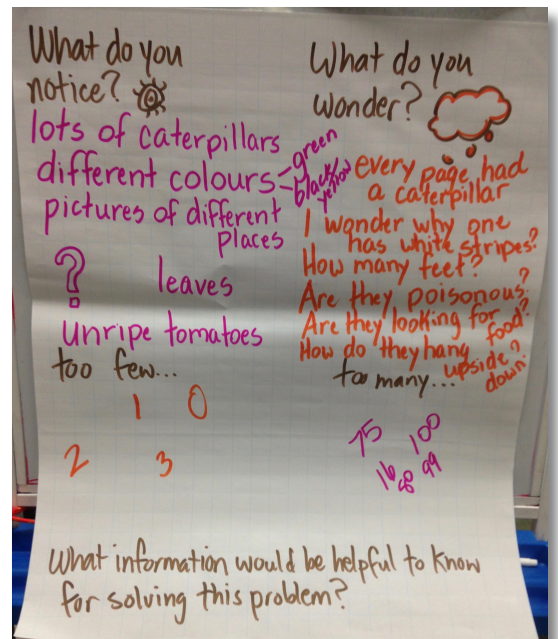 What do you
notice?
lots of caterpillars
different colours
green
black/
yellow
pictures of different
places
?
leaves
unripe tomatoes
too few...
1 0
2 3
What do you
wonder?
every page had
a caterpillar
I wonder why one
has white stripes?
How many feet?
Are they poisonous?
Are they looking for
food?
How do they hang
upside
down?
too many...
75 100
16 80 99
What information would be helpful to know
for solving this problem?